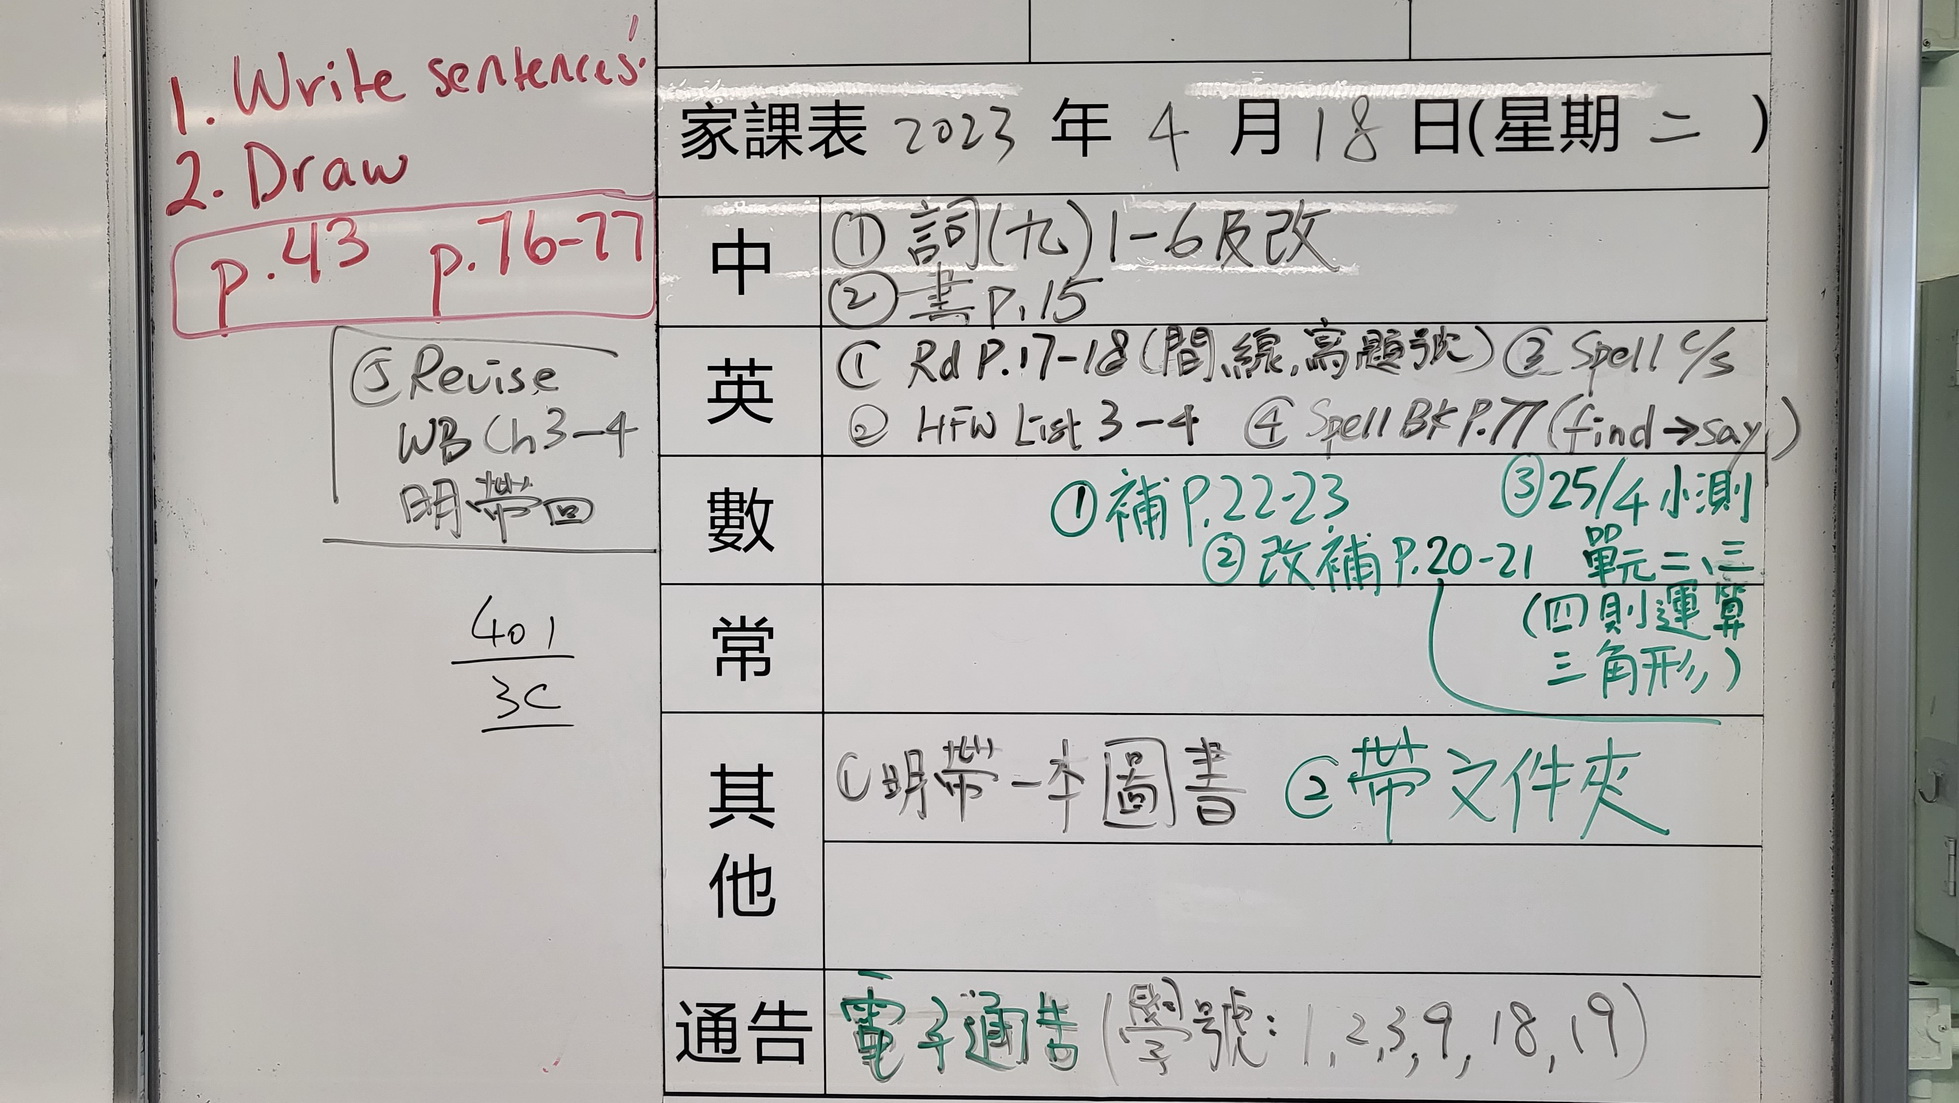 1. Write sentences.
2. Draw
p.43 p.76-77
⑤ Revise
WB Ch3-4
明帶回
401
3C
家課表 2023 年 4 月 18 日(星期 二 )
中
① 詞(九)1-6及改
② 書p.15
英
① Rd P.17-18(間線,寫題號) ③ Spell c/s
② HFW List 3-4 ④ Spell BK P.77(find→say)
數
① 補 P.22-23
② 改補 P.20-21
③ 25/4 小測
單元二、三
(四則運算
三角形)
常
其他
① 明帶一本圖書 ② 帶文件夾
通告
電子通告(學號:1,2,3,9,18,19)